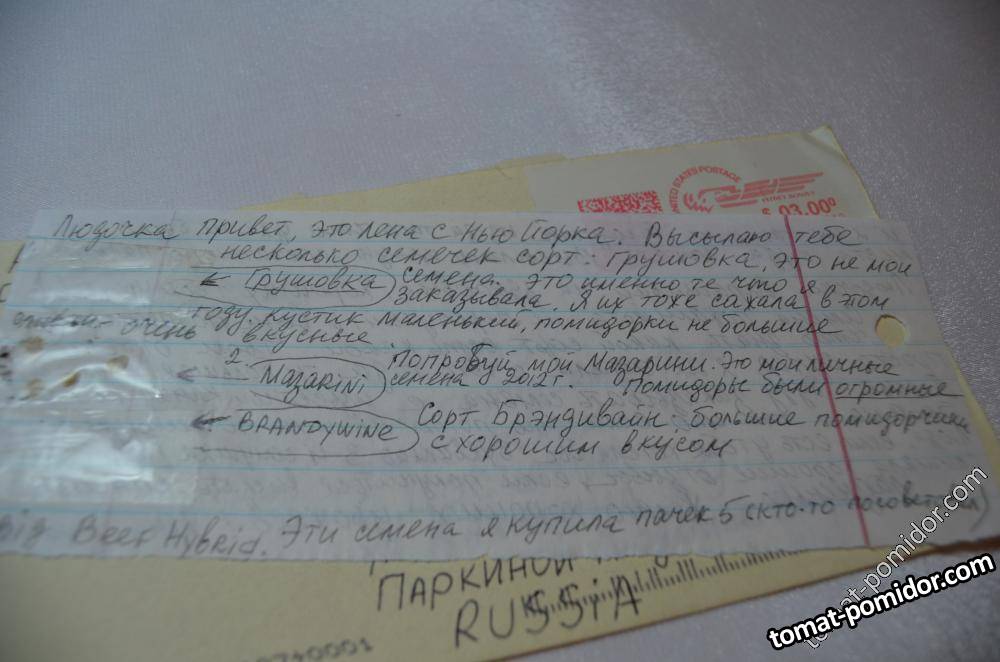 UNITED STATES POSTAGE
PITNEY BOWES
$ 03.00⁰
Людочка привет, это Лена с Нью Йорка. Высылаю тебе
несколько семечек сорт: Грушовка, это не мои
← Грушовка семена. Это именно те что я
заказывала. Я их тоже сахала в этом
году. Кустик маленький, помидорки не большие
очень вкусные
2. Попробуй мой Мазарини. Это мои личные
← Mazarini семена 2012г. Помидоры были огромные
← BRANDYWINE Сорт Брэндивайн: большие помидорчики
с хорошим вкусом
Big Beef Hybrid. Эти семена я купила пачек 5 (кто-то посоветовал)
ПАРКИНОЙ
RUSSIA
tomat-pomidor.com
tomat-pomidor.com